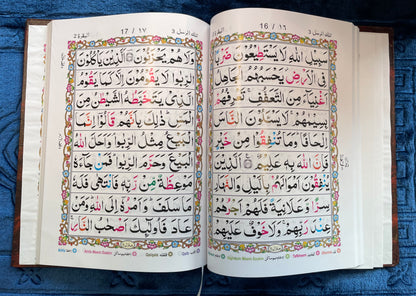 تلك الرسل ٣
16 / ١٦
سَبِيْلِ اللهِ لَا يَسْتَطِيْعُوْنَ ضَرْبًا
فِي الْاَرْضِ يَحْسَبُهُمُ الْجَاهِلُ
اَغْنِيَآءَ مِنَ التَّعَفُّفِ تَعْرِفُهُمْ
بِسِيْمٰىهُمْ لَا يَسْـَٔلُوْنَ النَّاسَ
اِلْحَافًا وَمَا تُنْفِقُوْا مِنْ خَيْرٍ
فَاِنَّ اللهَ بِهٖ عَلِيْمٌ اَلَّذِيْنَ
يُنْفِقُوْنَ اَمْوَالَهُمْ بِالَّيْلِ وَالنَّهَارِ
سِرًّا وَّعَلَانِيَةً فَلَهُمْ اَجْرُهُمْ
عِنْدَ رَبِّهِمْ وَلَا خَوْفٌ عَلَيْهِمْ
تلك الرسل ٣
17 / ١٧
البقرة ٢
وَلَا هُمْ يَحْزَنُوْنَ اَلَّذِيْنَ يَاْكُلُوْنَ
الرِّبٰوا لَا يَقُوْمُوْنَ اِلَّا كَمَا يَقُوْمُ
الَّذِيْ يَتَخَبَّطُهُ الشَّيْطٰنُ مِنَ
الْمَسِّ ذٰلِكَ بِاَنَّهُمْ قَالُوْا اِنَّمَا
الْبَيْعُ مِثْلُ الرِّبٰوا وَاَحَلَّ اللهُ
الْبَيْعَ وَحَرَّمَ الرِّبٰوا فَمَنْ جَآءَهٗ
مَوْعِظَةٌ مِّنْ رَّبِّهٖ فَانْتَهٰى فَلَهٗ
مَا سَلَفَ وَاَمْرُهٗ اِلَى اللهِ وَمَنْ
عَادَ فَاُولٰٓئِكَ اَصْحٰبُ النَّارِ